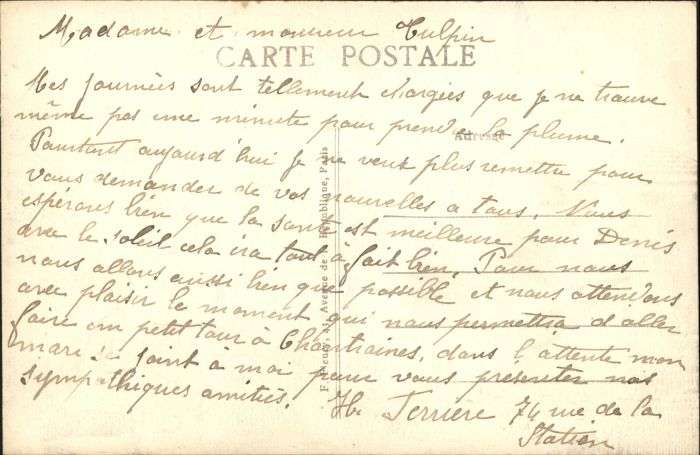 Madame et monsieur Tulpin
CARTE POSTALE
Mes journées sont tellement chargées que je ne trouve
même pas une minute pour prendre la plume.
Adresse
Pourtant aujourd'hui je ne veut plus remettre pour
vous demander de vos nouvelles a tous. Nous
espérons bien que la santé est meilleure pour Denis
avec le soleil cela ira tout à fait bien. Pour nous
nous allons aussi bien que possible et nous attendons
avec plaisir le moment qui nous permettra d'aller
faire un petit tour à Chantraines, dans l'attente mon
mari se joint à moi pour vous presenter nos
sympathiques amitiés. H. Ferriere 74 rue de la
Station
Avenue de la République, Paris